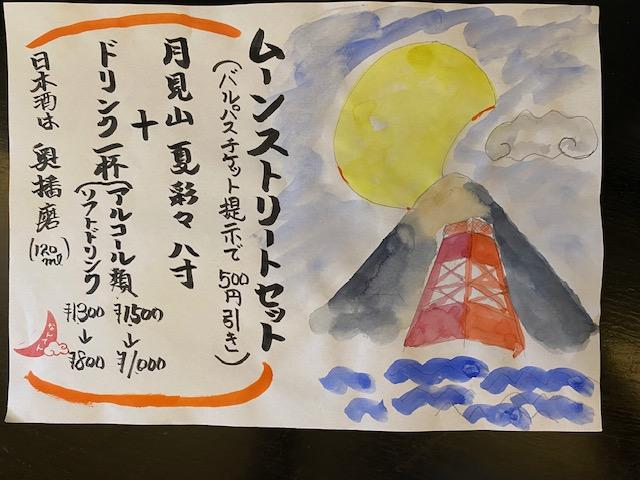 ムーンストリートセット
(バルパスチケット提示で500円引き)
月見山 夏彩々 八寸
+
ドリンク一杯
アルコール類 ¥1500→¥1000
ソフトドリンク ¥1300→¥800
日本酒は 奥播磨(120ml)
なんてん